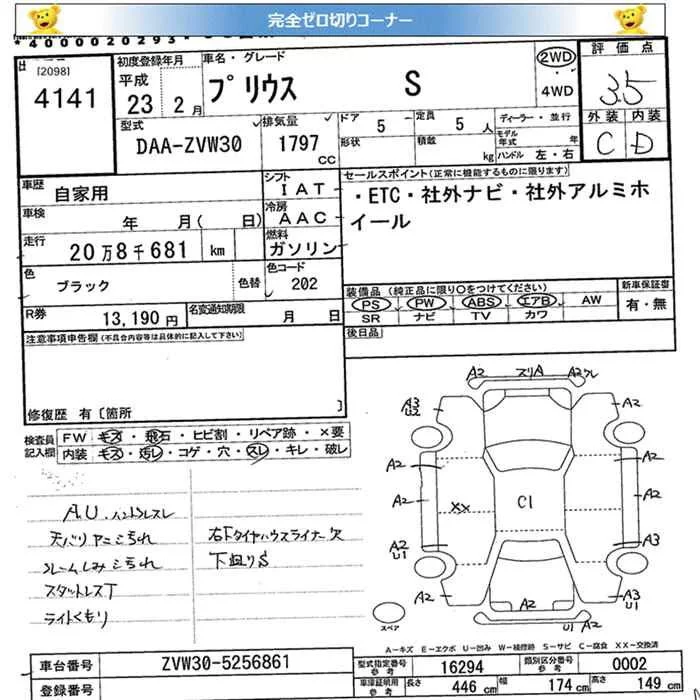 完全ゼロ切りコーナー
*4000020293*
[2098]
4141
初度登録年月
平成
23 2月
車名・グレード
プリウス S
2WD
・
4WD
評価点
3.5
外装 内装
C D
型式
DAA-ZVW30
排気量
1797
CC
ドア
5
形状
定員
5人
積載
kg
ディーラー・並行
モデル
年式 年
ハンドル 左・右
車歴
自家用
車検
年 月( 日)
走行
20万8千681 km
色
ブラック
色替
シフト
IAT
冷房
AAC
燃料
ガソリン
色コード
202
R券
13,190円
名変通知期限
月 日
セールスポイント(正常に機能するものに限ります)
・ETC・社外ナビ・社外アルミホ
イール
装備品(純正品に限り○をつけてください)
PS PW ABS エアB AW
SR ナビ TV カワ
新車保証書
有・無
後日品
注意事項申告欄(不具合内容等は具体的に記入して下さい)
修復歴 有〔箇所 〕
検査員
記入欄
FW キズ・飛石・ヒビ割・リペア跡・×要
内装 キズ・汚レ・コゲ・穴・スレ・キレ・破レ
A.U. ハンドルスレ
天バリヤニよごれ
スタットレスT
ライトくもり
右Fタイヤハウスライナー欠
下廻りS
A2 スリA A2
A3
U2
A2
A2 A2
A2 XX C1 A2
A2
U1
A3
A2 A2 A3
U1
U1 A2
スペア
A-キズ E-エクボ U-凹み W-補修跡 S-サビ C-腐食 XX-交換済
車台番号
ZVW30-5256861
登録番号
型式指定番号
参考
16294
類別区分番号
参考
0002
車庫証明用
参考
長さ 446cm 幅 174cm 高さ 149cm